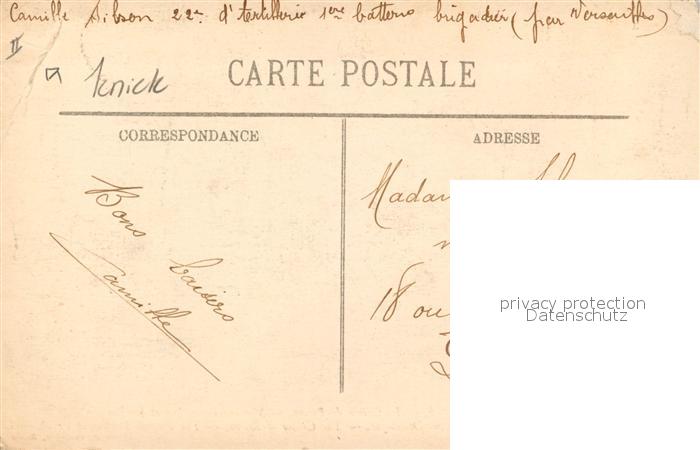 Camille Sibson 22e d'artillerie 1ere batterie brigadier (par Versailles)
II
Knick
CARTE POSTALE
CORRESPONDANCE
ADRESSE
Bons baisers
Camille
Madam
18 ou
privacy protection
Datenschutz